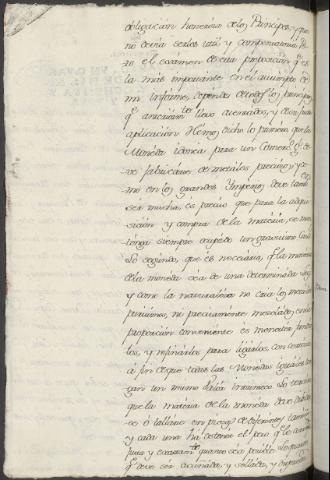 obligacion honerosa de los Principes y que
no devia serles util y compensarian Pe
ro el examen de esta proposicion q.e es
la mas importante en el assumpto de
mi informe, depende de todos los principios
q.e anteriorm.te llevo asentados, y de su pura
aplicacion Hemos dicho lo primero que la
Moneda idonea para un Comercio de
ve fabricarse de metales preciosos y q.e co
mo en los grandes Imperios deve tambien
ser mucha, es preciso que para la adqui
sicion y compra de la materia, se man
tenga siempre ocupado un gravisimo Caudal
Lo segundo, que es necesario q.e la materia
de la moneda sea de una determinada ley,
y como la naturaleza no cria los metales
purisimos, ni precisamente mezclados en la
proporcion conveniente es menester fundir
los, y refinarlos para ligarlos, con
a fin de que todas las Monedas iguales ten
gan un mismo valor intrinseco Lo tercero
que la materia de la moneda deve dividir
se o tallarse en piezas de diferentes tamaños
y cada una ha de tener el peso q.e le
pura y exactam.te quanto sea posible Lo quarto
q.e deve ser acuñada, y sellada, y